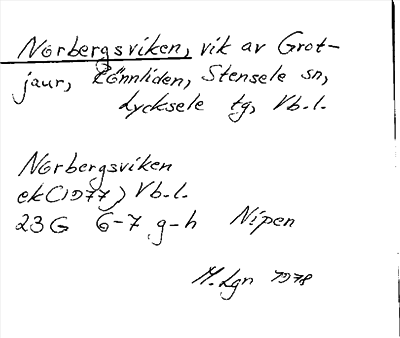 Norbergsviken, vik av Grot-
jaur, Lönnliden, Stensele sn,
Lycksele tg, Vb.l.
Norbergsviken
ek(1977) Vb.l.
23G 6-7 g-h Nipen
M.Lgn 1978